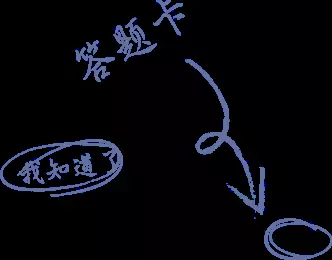 答题卡
我知道了